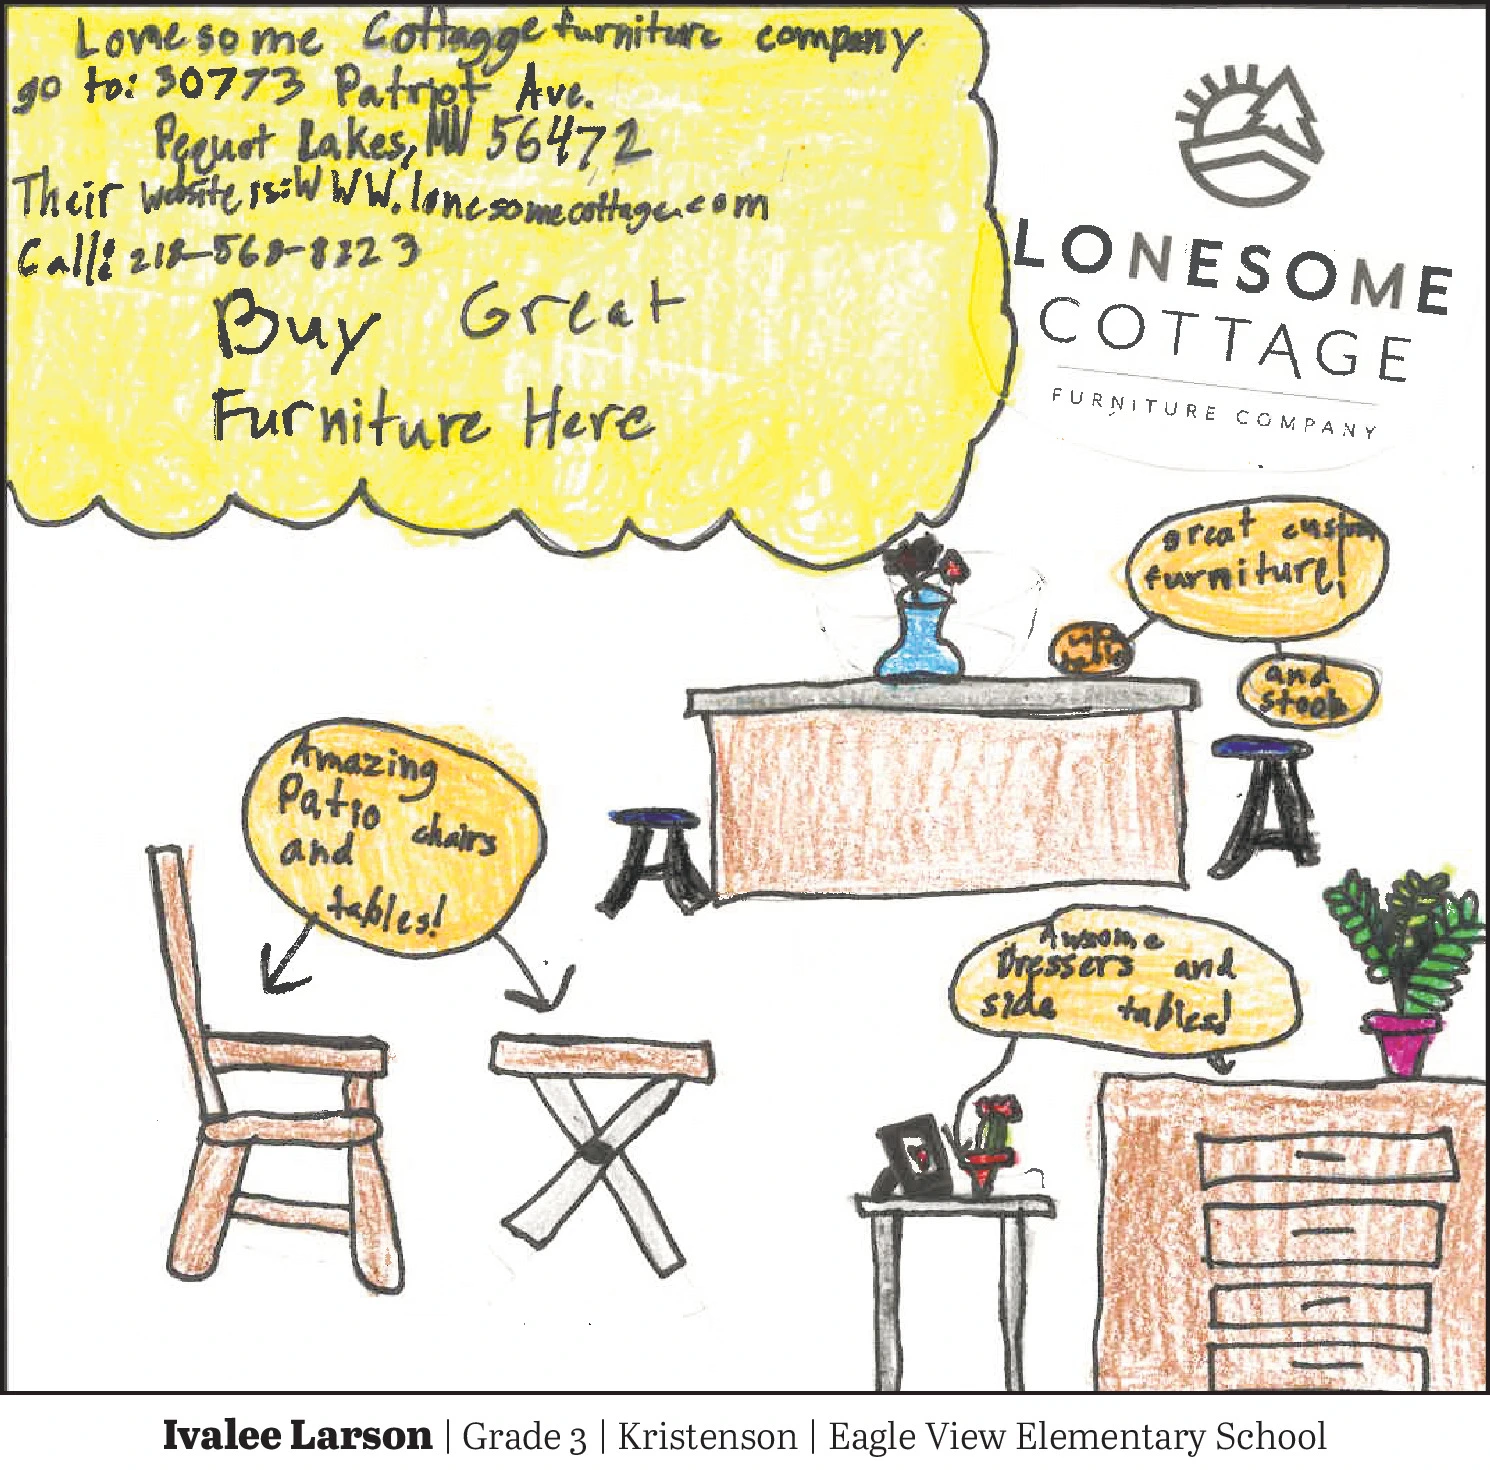 Lonesome Cottagge furniture company
go to: 30773 Patriot Ave.
Pequot Lakes, MN 56472
Their website is: WWW.lonesomecottage.com
Call: 218-568-8223
Buy Great
Furniture Here
LONESOME
COTTAGE
FURNITURE COMPANY
great custom
furniture!
and
stools
Amazing
Patio chairs
and
tables!
Awsome
Dressers and
side tables!
Ivalee Larson | Grade 3 | Kristenson | Eagle View Elementary School